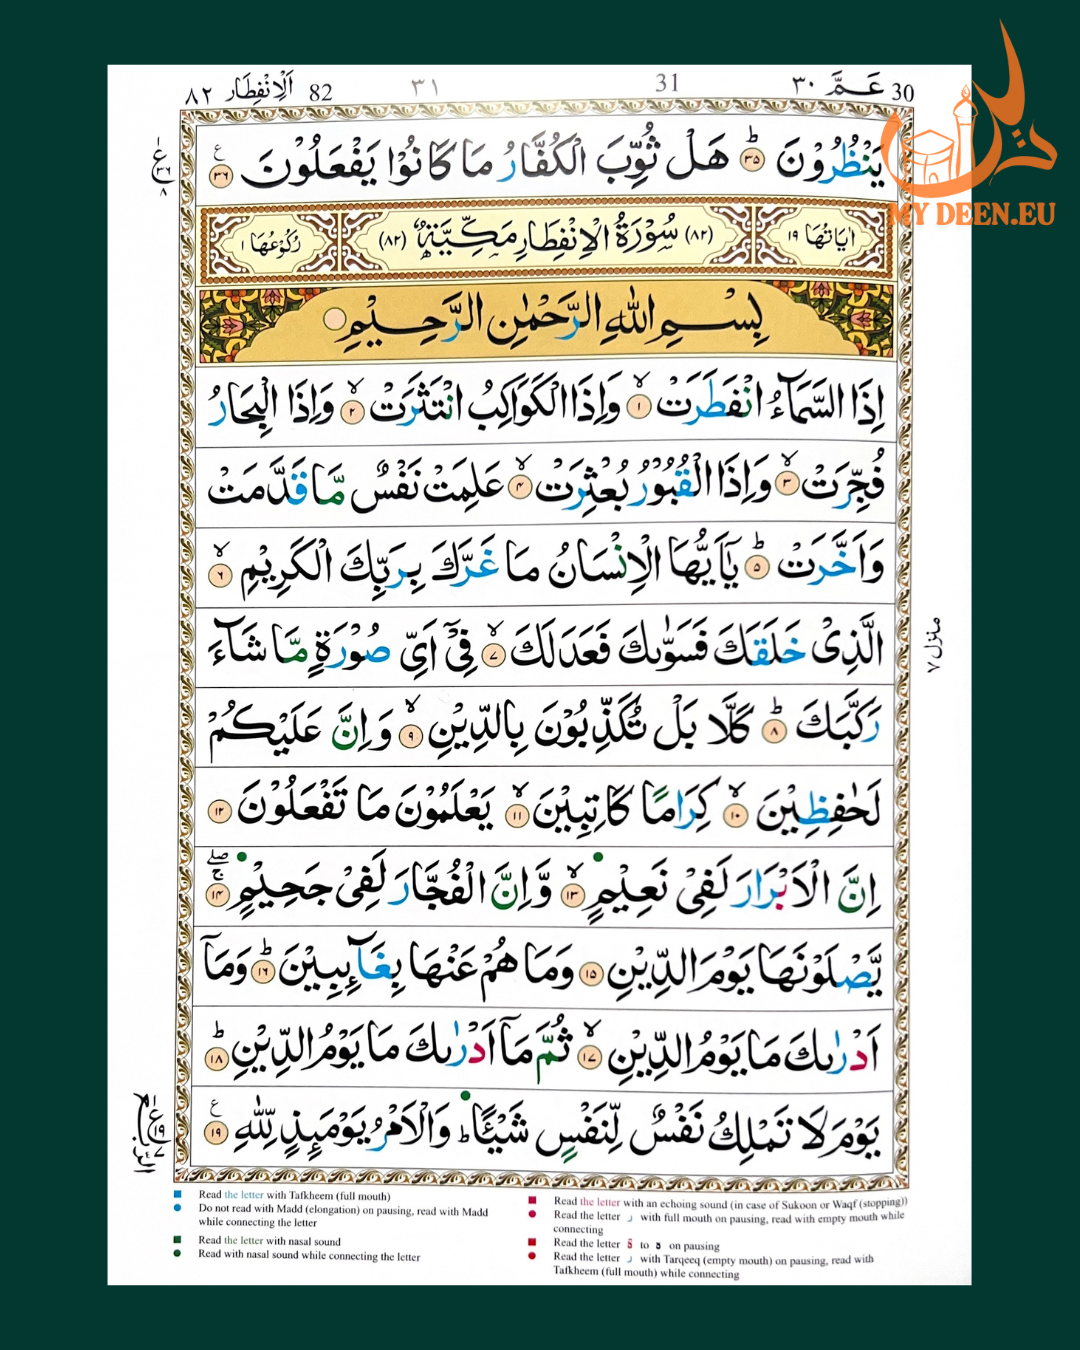 ٨٢ اَلْاِنْفِطَار 82 ٣١ 31 عَمَّ ٣٠ 30
MY DEEN.EU
يَنْظُرُوْنَ ؕ ٣٥ هَلْ ثُوِّبَ الْكُفَّارُ مَا كَانُوْا يَفْعَلُوْنَ ٣٦ ع
ع ٣٦ ٨
اٰيَاتُهَا ١٩ (٨٢) سُوْرَةُ الْاِنْفِطَارِ مَكِّيَّةٌ (٨٢) رُكُوْعُهَا ١
بِسْمِ اللّٰهِ الرَّحْمٰنِ الرَّحِيْمِ
اِذَا السَّمَآءُ انْفَطَرَتْ ۙ ١ وَاِذَا الْكَوَاكِبُ انْتَثَرَتْ ۙ ٢ وَاِذَا الْبِحَارُ
فُجِّرَتْ ۙ ٣ وَاِذَا الْقُبُوْرُ بُعْثِرَتْ ۙ ٤ عَلِمَتْ نَفْسٌ مَّا قَدَّمَتْ
وَاَخَّرَتْ ؕ ٥ يٰۤاَيُّهَا الْاِنْسَانُ مَا غَرَّكَ بِرَبِّكَ الْكَرِيْمِ ۙ ٦
الَّذِىْ خَلَقَكَ فَسَوّٰىكَ فَعَدَلَكَ ۙ ٧ فِىْۤ اَىِّ صُوْرَةٍ مَّا شَآءَ
رَكَّبَكَ ؕ ٨ كَلَّا بَلْ تُكَذِّبُوْنَ بِالدِّيْنِ ۙ ٩ وَاِنَّ عَلَيْكُمْ
لَحٰفِظِيْنَ ۙ ١٠ كِرَامًا كَاتِبِيْنَ ۙ ١١ يَعْلَمُوْنَ مَا تَفْعَلُوْنَ ١٢
اِنَّ الْاَبْرَارَ لَفِىْ نَعِيْمٍ ۙ ١٣ وَّاِنَّ الْفُجَّارَ لَفِىْ جَحِيْمٍ ۖۚ ١٤
يَّصْلَوْنَهَا يَوْمَ الدِّيْنِ ١٥ وَمَا هُمْ عَنْهَا بِغَآئِبِيْنَ ؕ ١٦ وَمَاۤ
اَدْرٰىكَ مَا يَوْمُ الدِّيْنِ ۙ ١٧ ثُمَّ مَاۤ اَدْرٰىكَ مَا يَوْمُ الدِّيْنِ ؕ ١٨
يَوْمَ لَا تَمْلِكُ نَفْسٌ لِّنَفْسٍ شَيْئًا ؕ وَالْاَمْرُ يَوْمَئِذٍ لِّلّٰهِ ١٩ ع
منزل ٧
ع ١٩ ٧
Read the letter with Tafkheem (full mouth)
Do not read with Madd (elongation) on pausing, read with Madd
while connecting the letter
Read the letter with nasal sound
Read with nasal sound while connecting the letter
Read the letter with an echoing sound (in case of Sukoon or Waqf (stopping))
Read the letter ر with full mouth on pausing, read with empty mouth while
connecting
Read the letter ة to ه on pausing
Read the letter ر with Tarqeeq (empty mouth) on pausing, read with
Tafkheem (full mouth) while connecting